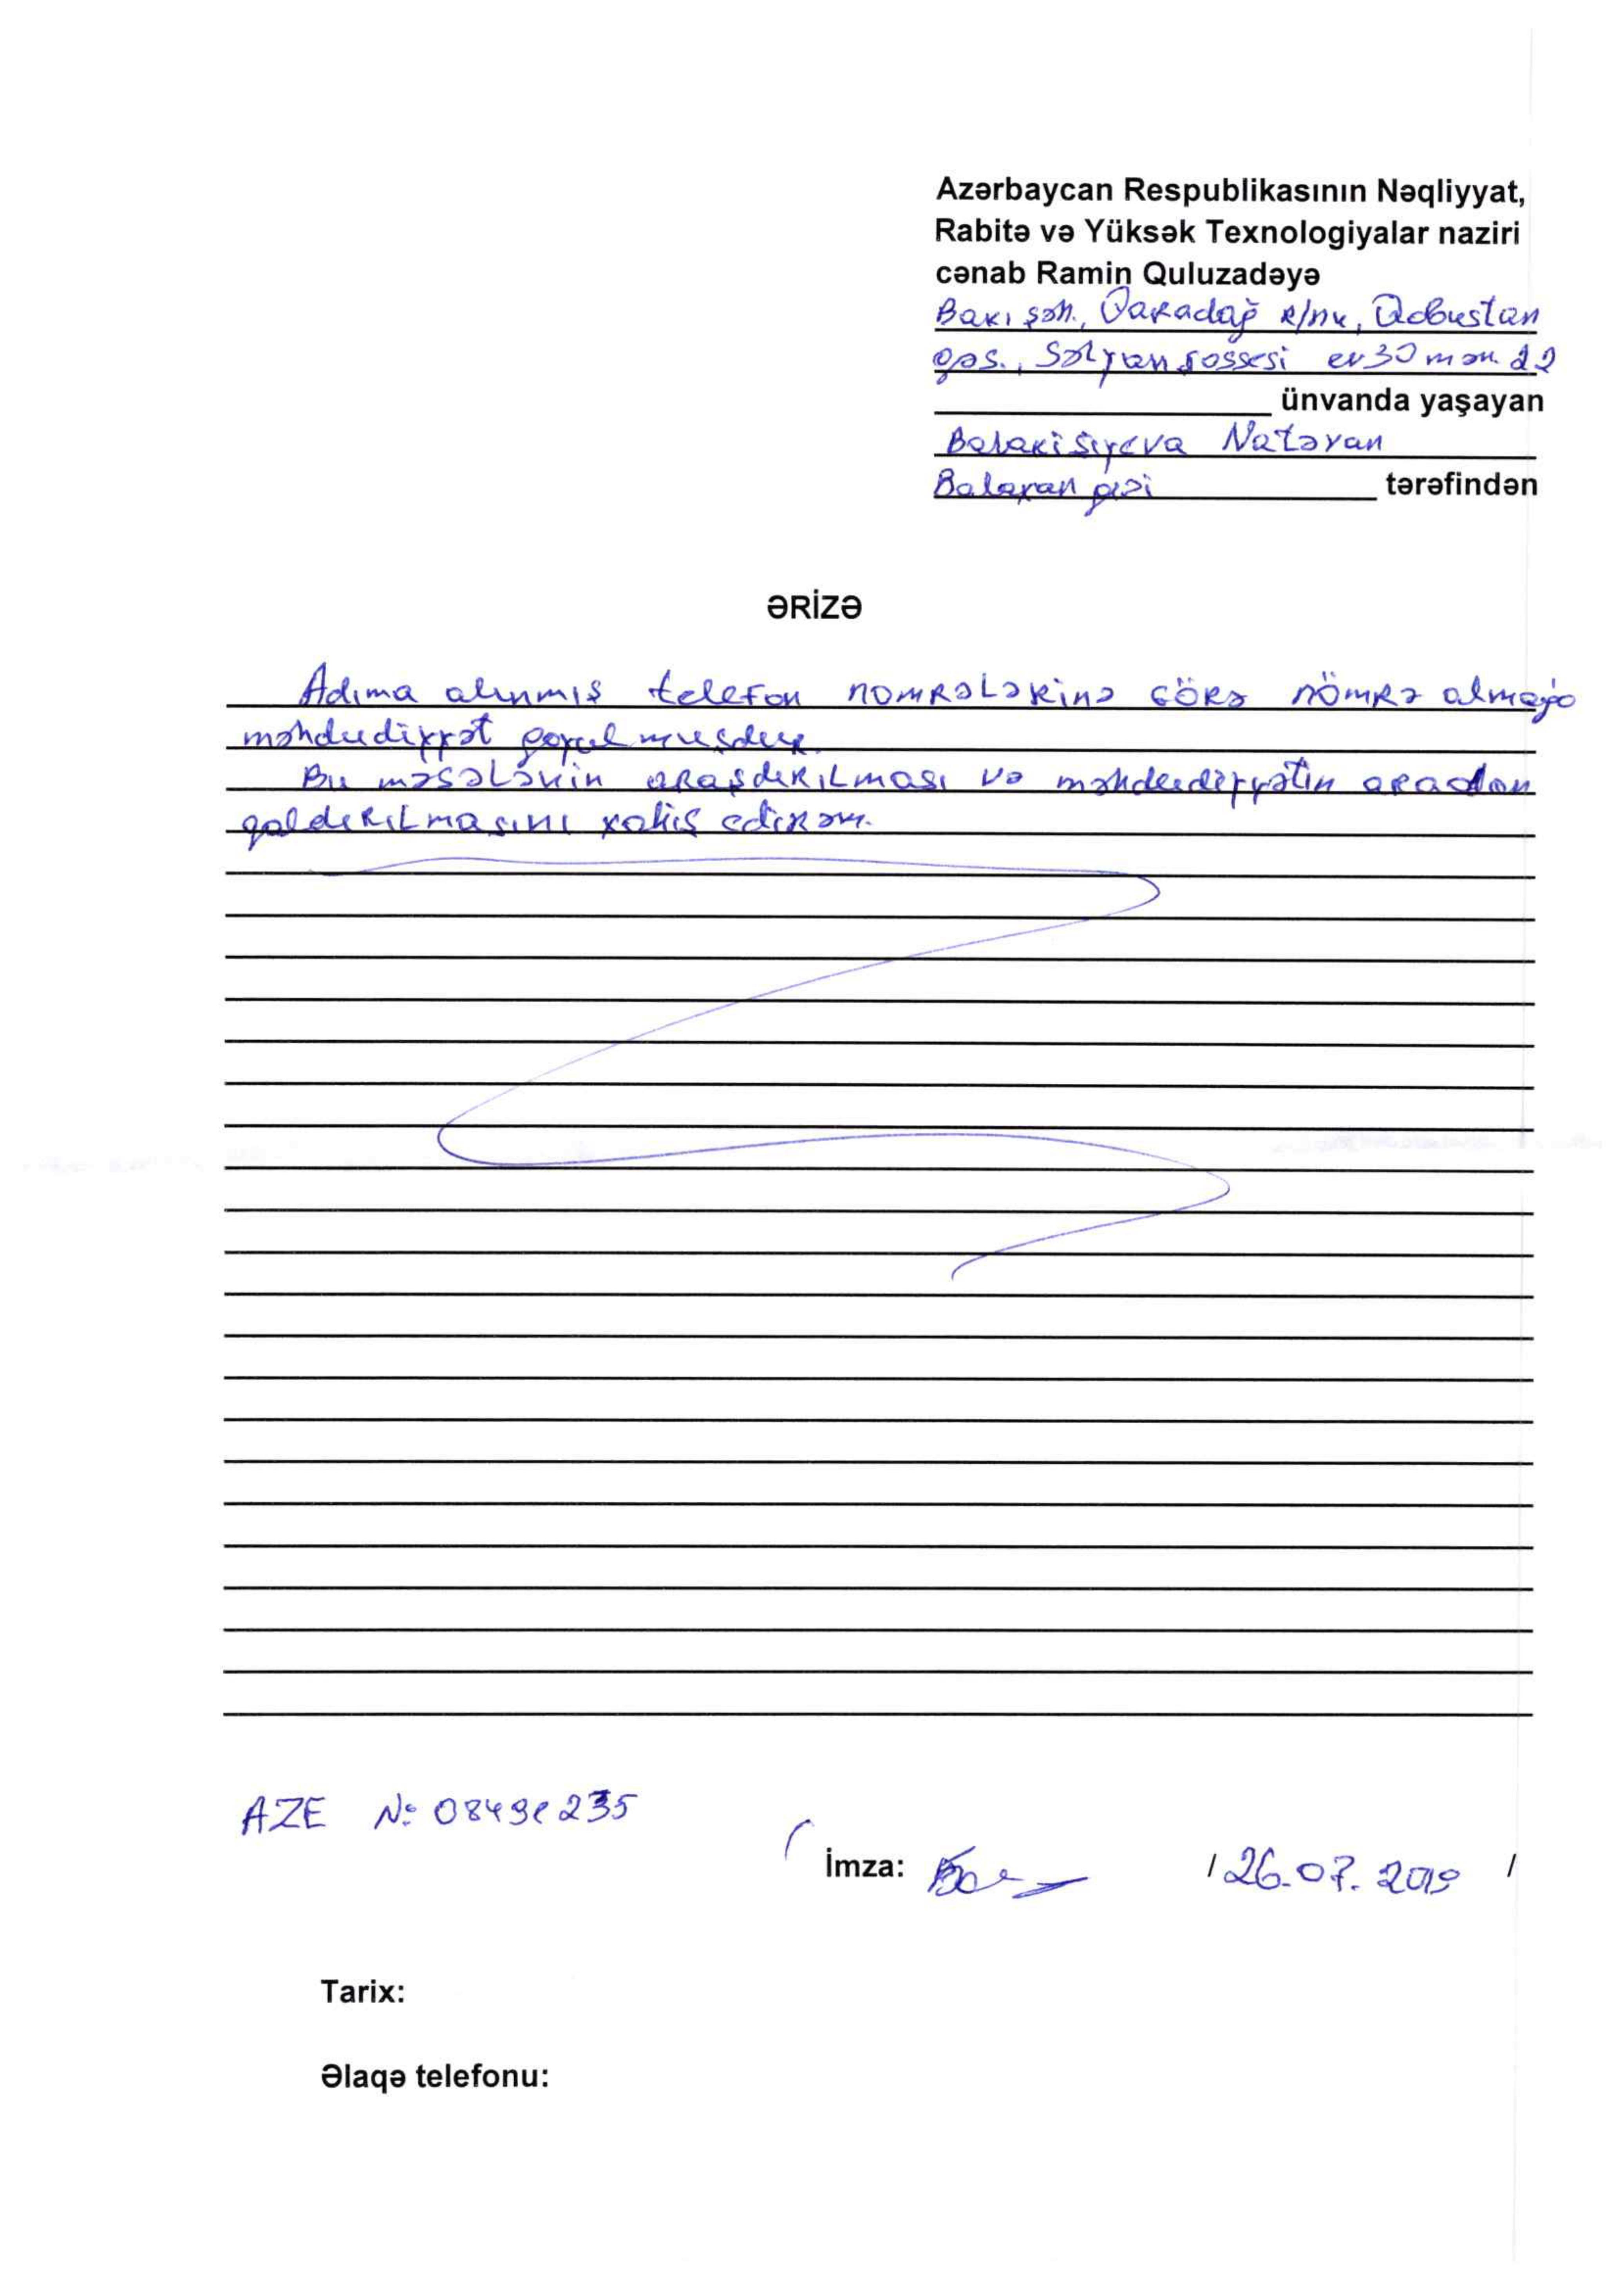 Azərbaycan Respublikasının Nəqliyyat,
Rabitə və Yüksək Texnologiyalar naziri
cənab Ramin Quluzadəyə
Bakı şəh., Qaradağ r/nu, Qobustan
qəs., Salyan şossesi ev 30 mən 22
ünvanda yaşayan
Balakişiyeva Natəvan
Balaxan qızı tərəfindən
ƏRİZƏ
Adıma alınmış telefon nomrələrinə görə nömrə almağa
məhdudiyyət qoyulmuşdur.
Bu məsələnin araşdırılması və məhdudiyyətin aradan
qaldırılmasını xahiş edirəm.
AZE №
İmza: / 26.07.2019 /
Tarix:
Əlaqə telefonu: